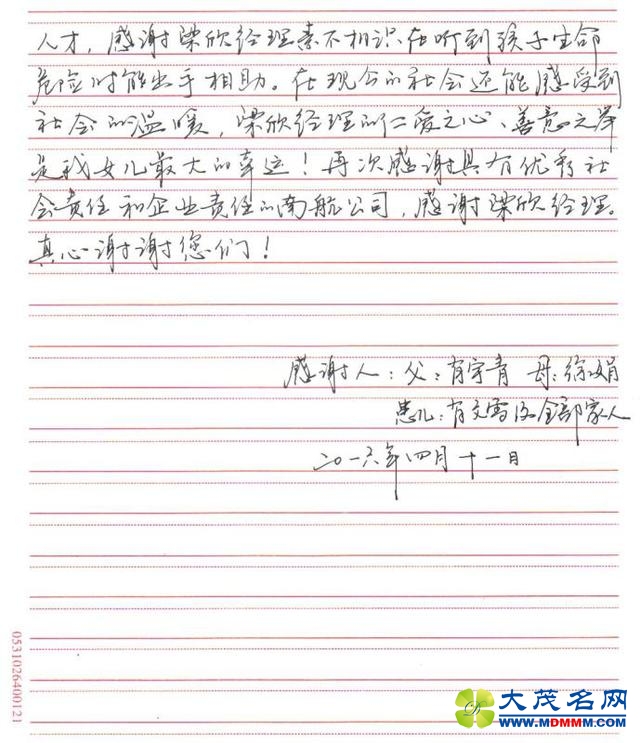 人才，感谢梁欣经理素不相识在听到孩子生命
危险时能出手相助。在现今的社会还能感受到
社会的温暖，梁欣经理的仁爱之心、善意之举
是我女儿最大的幸运！再次感谢具有优秀社
会责任和企业责任的南航公司，感谢梁欣经理。
真心谢谢您们！
感谢人：父：肖宇青 母：徐娟
患儿：肖文雪及全部家人
二〇一六年四月十一日
0531026400121
大茂名网
WWW.MDMMM.COM